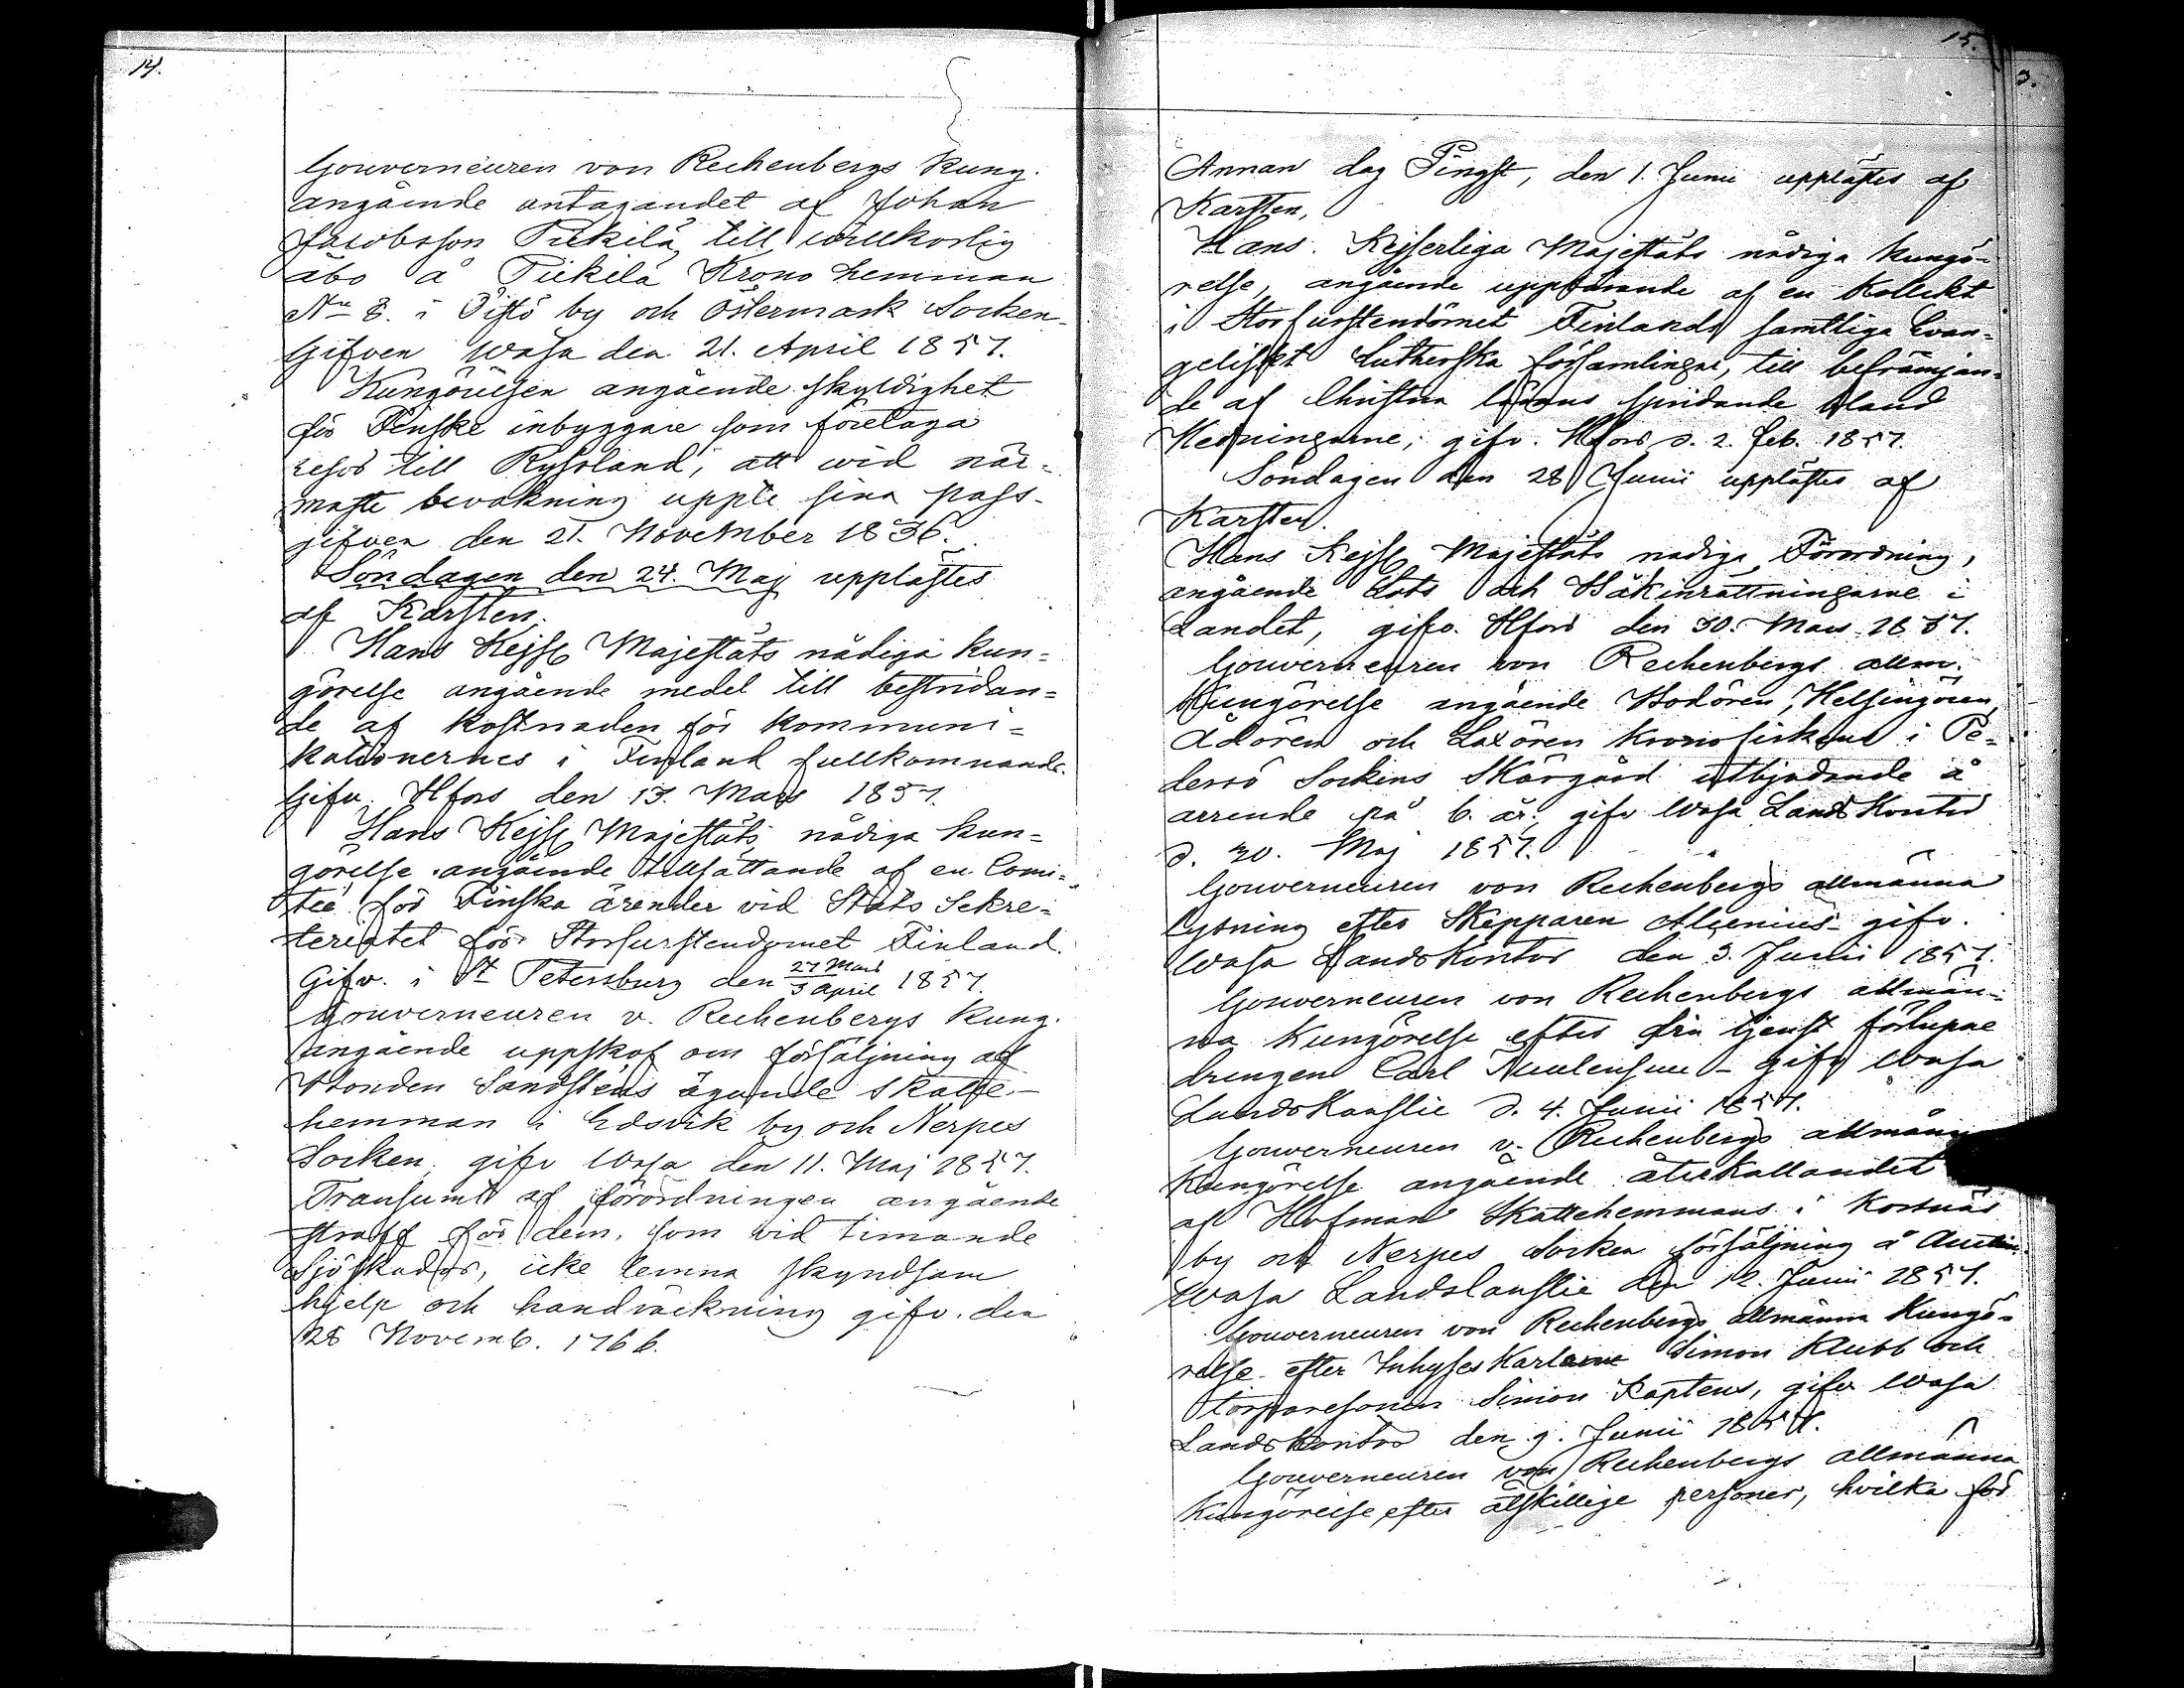 14.
Gouverneuren von Rechenbergs kung.
angående antagandet af Johan
Jacobsson Tiikilä, till willkorlig
åbo å Tiikilä Krono hemman
No 8. i Östermark Socken.
Gifven Wasa den 21. April 1857.
Kungörelsen angående skyldighet
för Finske inbyggare som företaga
resor till Ryssland, att wid när-
maste bevakning uppte sina pass-
gifven den 21. November 1836.
Söndagen den 24. Maj upplästes
af Karsten,
Hans Kejs Majestäts nådiga kun-
görelse angående medel till bestridan-
de af kostnaden för kommuni-
kationernes i Finland fullkomnande.
Gifv. Hfors den 13. Mars 1857.
Hans Kejs Majestäts nådiga kun-
görelse angående tillsättande af en Comi-
tée för Finska ärender vid Stats Sekre-
teriatet för Storfurstendomet Finland.
Gifv. i St Petersburg den 27 Mars / 3 April 1857.
Gouverneuren v. Rechenbergs kung.
angående uppskof om försäljning af
Bonden Sandstens ägande skatte-
hemman i Edsvik by och Nerpes
Socken, gifv Wasa den 11. Maj 1857.
Transumt af förordningen angående
straff för dem, som vid timande
Sjöskador, icke lemna skyndsam
hjelp och handräckning gifv. den
28 Novemb. 1766.
15.
3.
Annan dag Pingst, den 1. Junii upplästes af
Karsten,
Hans Kejserliga Majestäts nådiga kungö-
relse, angående upptagande af en Kollekt
i Storfurstendömet Finlands samtliga Evan-
geliskt Lutherska församlingar, till befrämjan-
de af Christna lärans spridande bland
Hedningarne, gifv. Hfors d. 2. feb. 1857.
Söndagen den 28 Junii upplästes af
Karsten.
Hans Kejs Majestäts nådiga Förordning,
angående Lots och Båkinrättningarne i
Landet, gifv. Hfors den 30. Mars 1857.
Gouverneuren von Rechenbergs allm.
Kungörelse angående Bodören, Helsingören,
Ådören och Laxören kronofiskens i Pe-
dersö Sockens Skärgård utbjudande å
arrende på 6. år, gifv Wasa LandsKontor
d. 20. Maj 1857.
Gouverneuren von Rechenbergs allmänna
Lysning efter Skepparen Alcenius gifv.
Wasa LandsKontor den 3. Junii 1857.
Gouverneuren von Rechenbergs allmän-
na kungörelse efter från tjenst förlupne
drengen Carl gifv Wasa
LandsKanslie d. 4. Junii 1857.
Gouverneuren v. Rechenbergs allmänna
Kungörelse angående återkallandet
af Hofman Skattehemmans i Korsnäs
by och Nerpes Socken försäljning å Auction.
Wasa Landskanslie den 12. Junii 1857.
Gouverneuren von Rechenbergs allmänna Kungö-
relse efter InhysesKarlarne Simon Klubb och
torparesonen Simon Kaptens, gifv Wasa
LandsKontor den 9. Junii 1857.
Gouverneuren von Rechenbergs allmänna
Kungörelse efter åtskillige personer, hvilka för